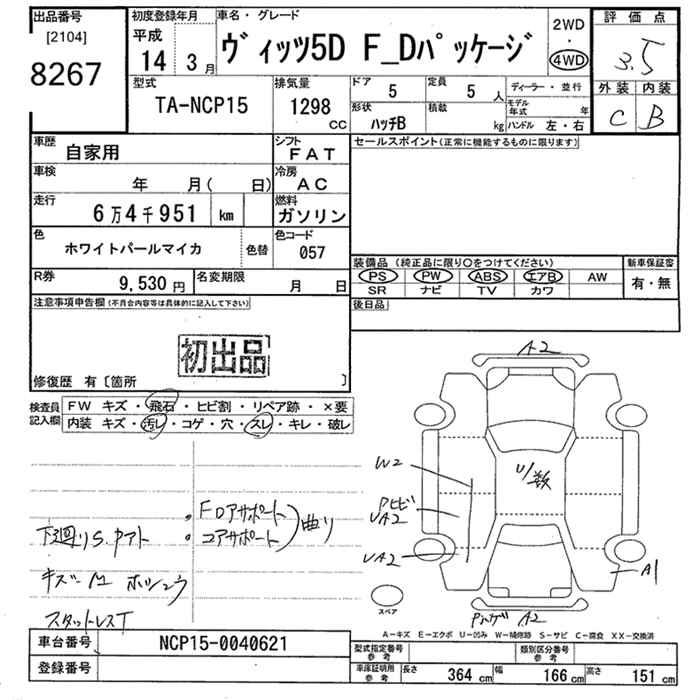 出品番号
[2104]
8267
初度登録年月
平成
14 3月
車名・グレード
ヴィッツ5D F_Dパッケージ
2WD
・
4WD
評価点
3.5
外装 内装
C B
型式
TA-NCP15
排気量
1298
CC
ドア
5
定員
5 人
ディーラー・並行
モデル年式 年
形状
ハッチB
積載
kg
ハンドル 左・右
車歴
自家用
シフト
FAT
車検
年 月( 日)
冷房
AC
走行
6万4千951 km
燃料
ガソリン
色
ホワイトパールマイカ
色替
色コード
057
R券
9,530 円
名変期限
月 日
セールスポイント(正常に機能するものに限ります)
装備品 (純正品に限り○をつけてください)
PS PW ABS エアB AW
SR ナビ TV カワ
新車保証書
有・無
後日品
注意事項申告欄(不具合内容等は具体的に記入して下さい)
初出品
修復歴 有〔箇所 〕
検査員記入欄
FW キズ・飛石・ヒビ割・リペア跡・×要
内装 キズ・汚レ・コゲ・穴・スレ・キレ・破レ
A2
W2
U/数
UA2
UA2
A1
A2
FDアサポート
コアサポート
曲り
下廻りS.
スタットレスT
スペア
A-キズ E-エクボ U-凹み W-補修跡 S-サビ C-腐食 XX-交換済
車台番号
NCP15-0040621
登録番号
型式指定番号
参考
類別区分番号
参考
車庫証明用
参考
長さ 364 cm
幅 166 cm
高さ 151 cm